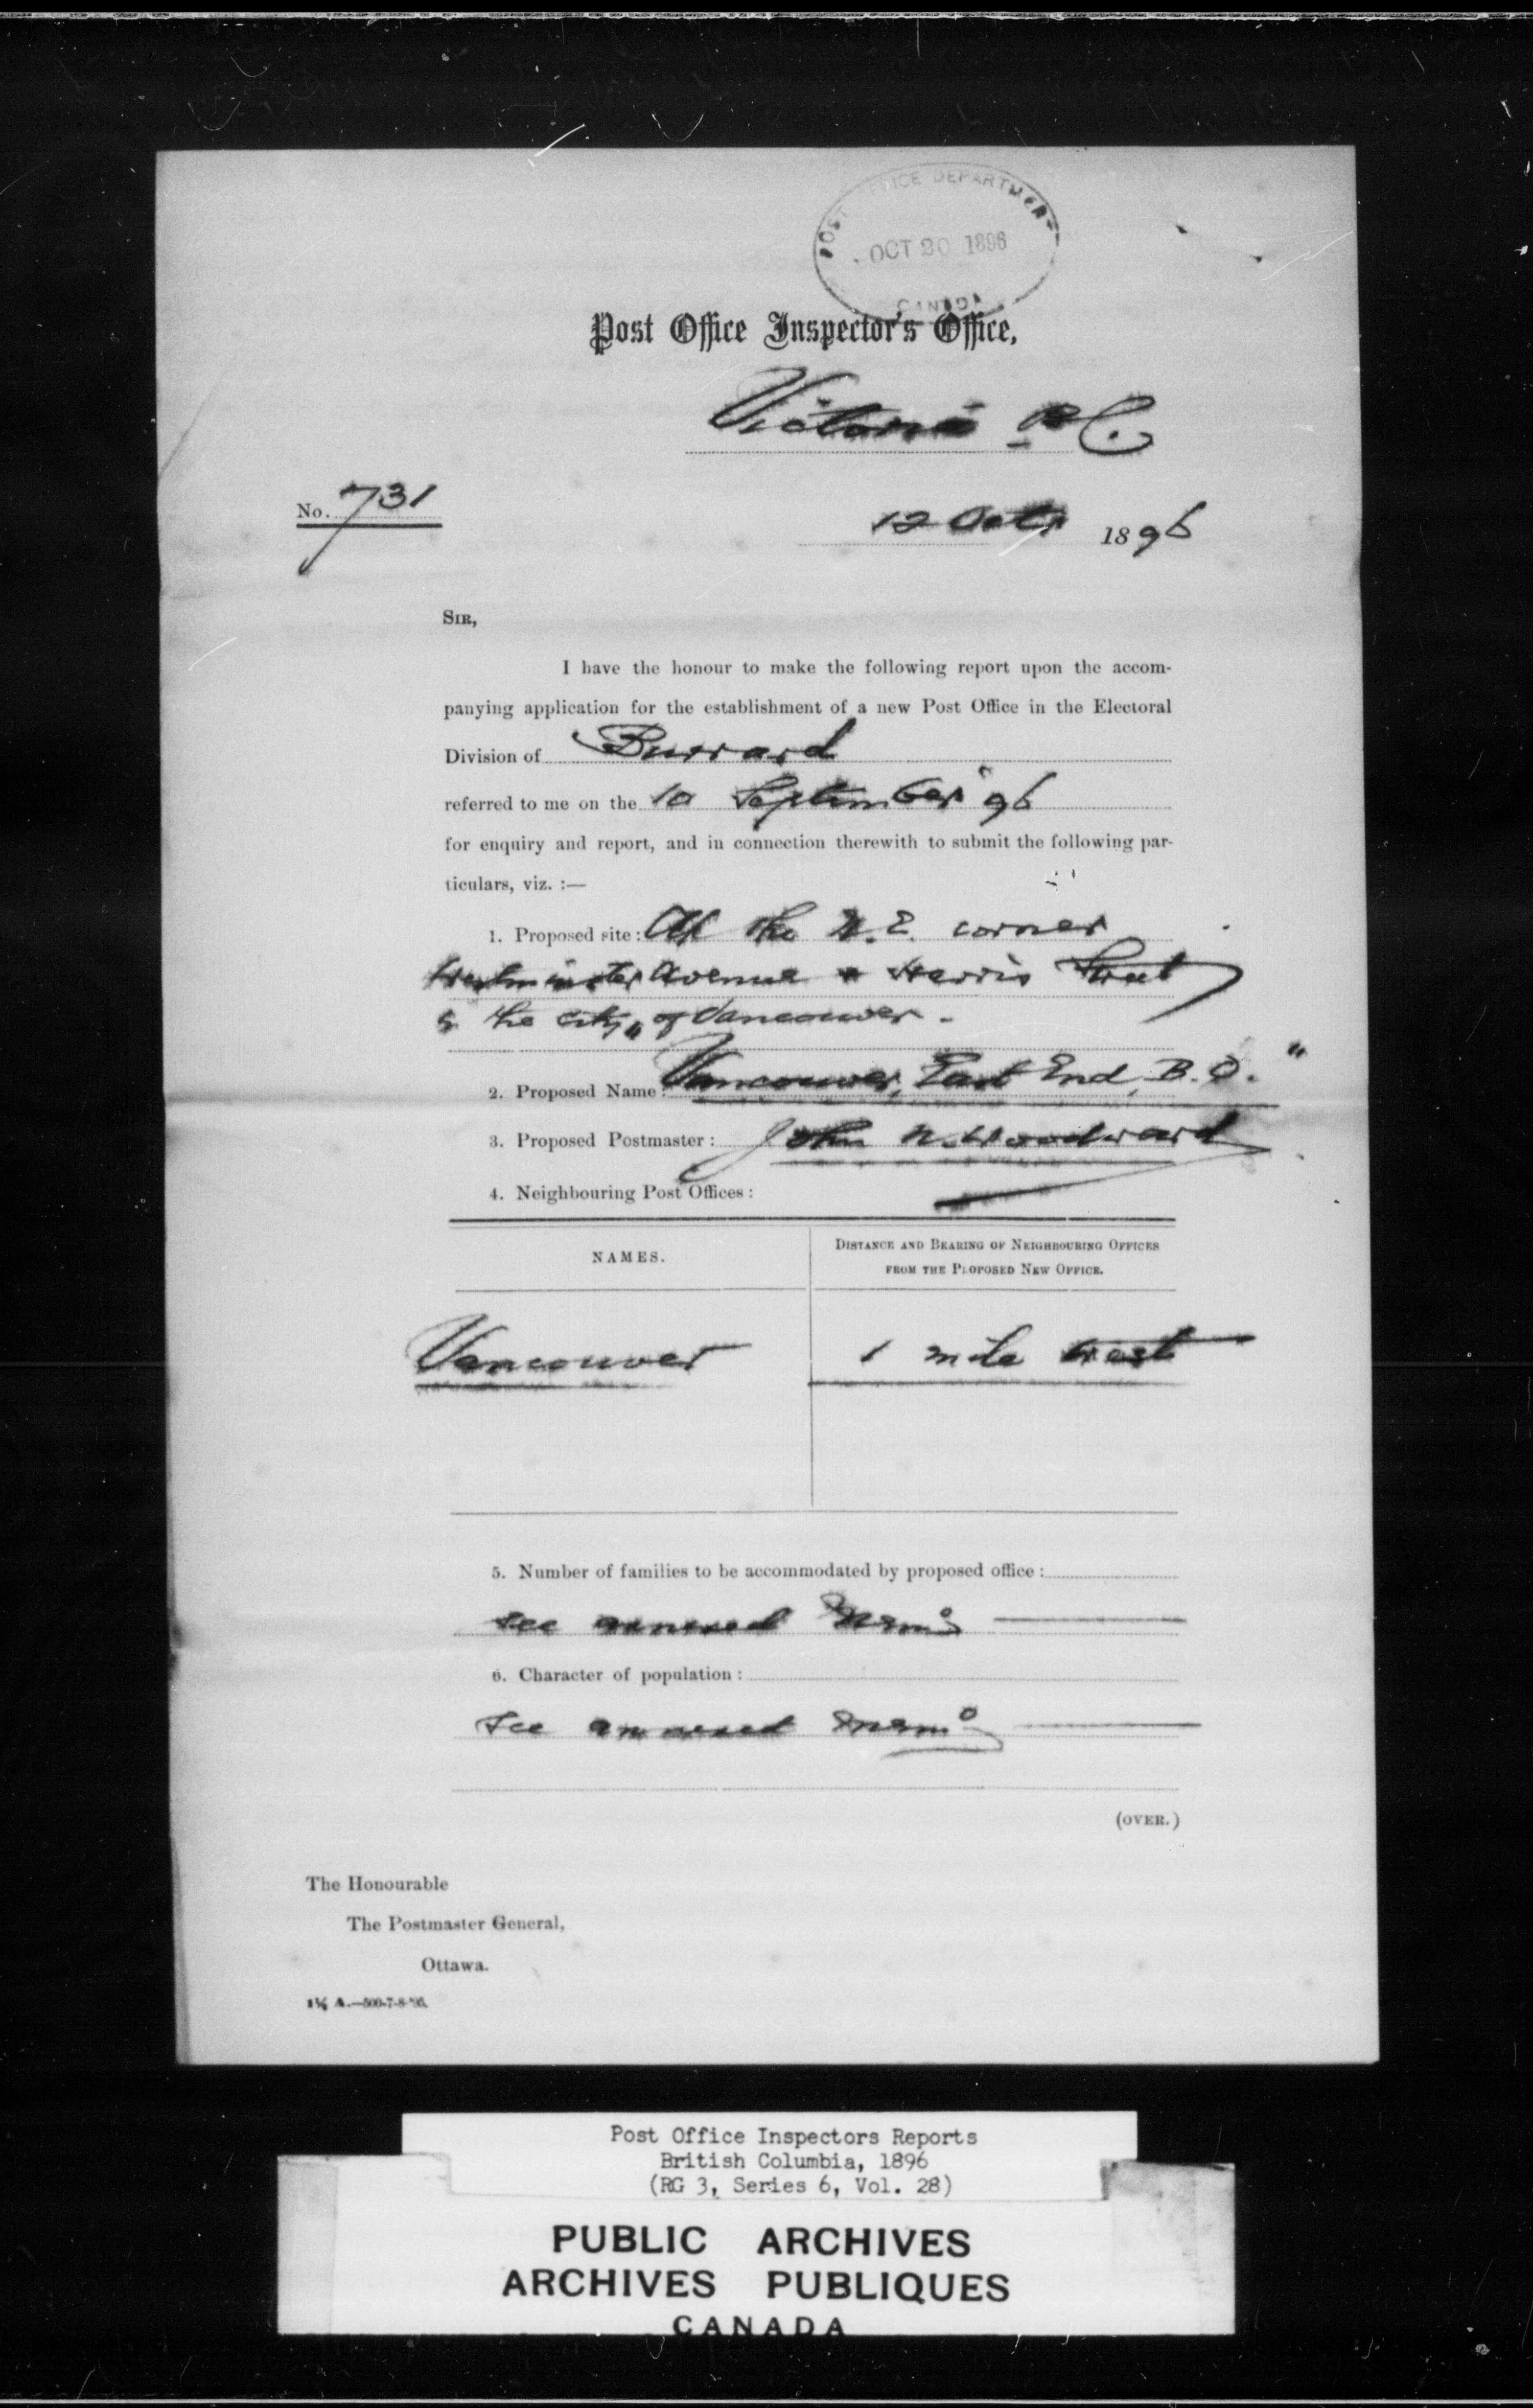 POST OFFICE DEPARTMENT
OCT 20 1896
CANADA
Post Office Inspector's Office,
Victoria BC.
No. 731
12 Octr 1896
SIR,
I have the honour to make the following report upon the accom-
panying application for the establishment of a new Post Office in the Electoral
Division of Burrard
referred to me on the 10 September 96
for enquiry and report, and in connection therewith to submit the following par-
ticulars, viz. :—
1. Proposed site: At the N.E. corner
Westminster Avenue & Harris Street
the city of Vancouver.
2. Proposed Name: Vancouver, East End, B.C."
3. Proposed Postmaster: John N. Woodward
4. Neighbouring Post Offices:
NAMES.
DISTANCE AND BEARING OF NEIGHBOURING OFFICES
FROM THE PROPOSED NEW OFFICE.
Vancouver 1 mile West
5. Number of families to be accommodated by proposed office:
See annexed Memo
6. Character of population:
See annexed memo
(OVER.)
The Honourable
The Postmaster General,
Ottawa.
Post Office Inspectors Reports
British Columbia, 1896
(RG 3, Series 6, Vol. 28)
PUBLIC ARCHIVES
ARCHIVES PUBLIQUES
CANADA